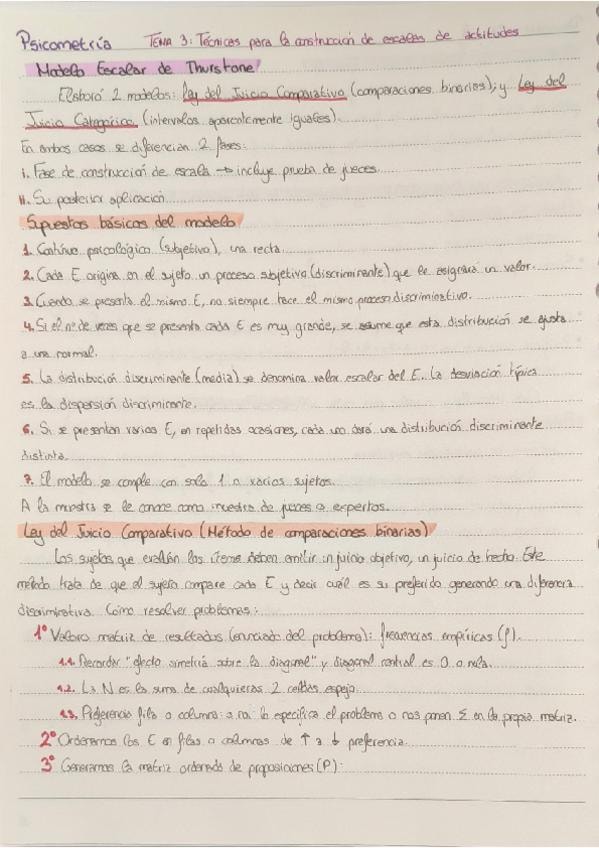 Psicometría TEMA 3: Técnicas para la construcción de escalas de actitudes
Modelo Escalar de Thurstone
Elaboró 2 modelos: Ley del Juicio Comparativo (comparaciones binarias); y Ley del
Juicio Categórico (intervalos aparentemente iguales).
En ambos casos se diferencian 2 fases:
i. Fase de construcción de escala → incluye prueba de jueces.
ii. Su posterior aplicación.
Supuestos básicos del modelo
1. Continuo psicológico (subjetivo), una recta.
2. Cada E origina en el sujeto un proceso subjetivo (discriminante) que le asignará un valor.
3. Cuando se presenta el mismo E, no siempre hace el mismo proceso discriminativo.
4. Si el nº de veces que se presenta cada E es muy grande, se asume que esta distribución se ajusta
a una normal.
5. La distribución discriminante (media) se denomina valor escalar del E. La desviación típica
es la dispersión discriminante.
6. Si se presentan varios E, en repetidas ocasiones, cada uno dará una distribución discriminante
distinta.
7. El modelo se cumple con solo 1 o varios sujetos.
A la muestra se le conoce como muestra de jueces o expertos.
Ley del Juicio Comparativo (Método de comparaciones binarias)
Los sujetos que evalúan los ítems deben emitir un juicio objetivo, un juicio de hecho. Este
método trata de que el sujeto compare cada E y decir cuál es su preferido generando una diferencia
discriminativa. Cómo resolver problemas:
1º Valoro matriz de resultados (enunciado del problema): frecuencias empíricas (f).
1.1. Recordar "efecto simetría sobre la diagonal" y diagonal central es 0 o nula.
1.2. La N es la suma de cualquieras 2 celdas espejo.
1.3. Preferencia fila o columna: o lo especifica el problema o nos ponen Σ en la propia matriz.
2º Ordenamos los E en filas o columnas de ↑ a ↓ preferencia.
3º Generamos la matriz ordenada de proposiciones (P):